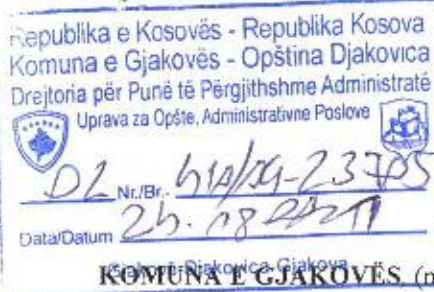 Republika e Kosovës - Republika Kosova
Komuna e Gjakovës - Opština Djakovica
Drejtoria për Punë të Përgjithshme Administratë
Uprava za Opšte, Administrativne Poslove
02 Nr./Br.-
Data/Datum
Gjakovë-Djakovica-Gjakova
KOMUNA E GJAKOVËS